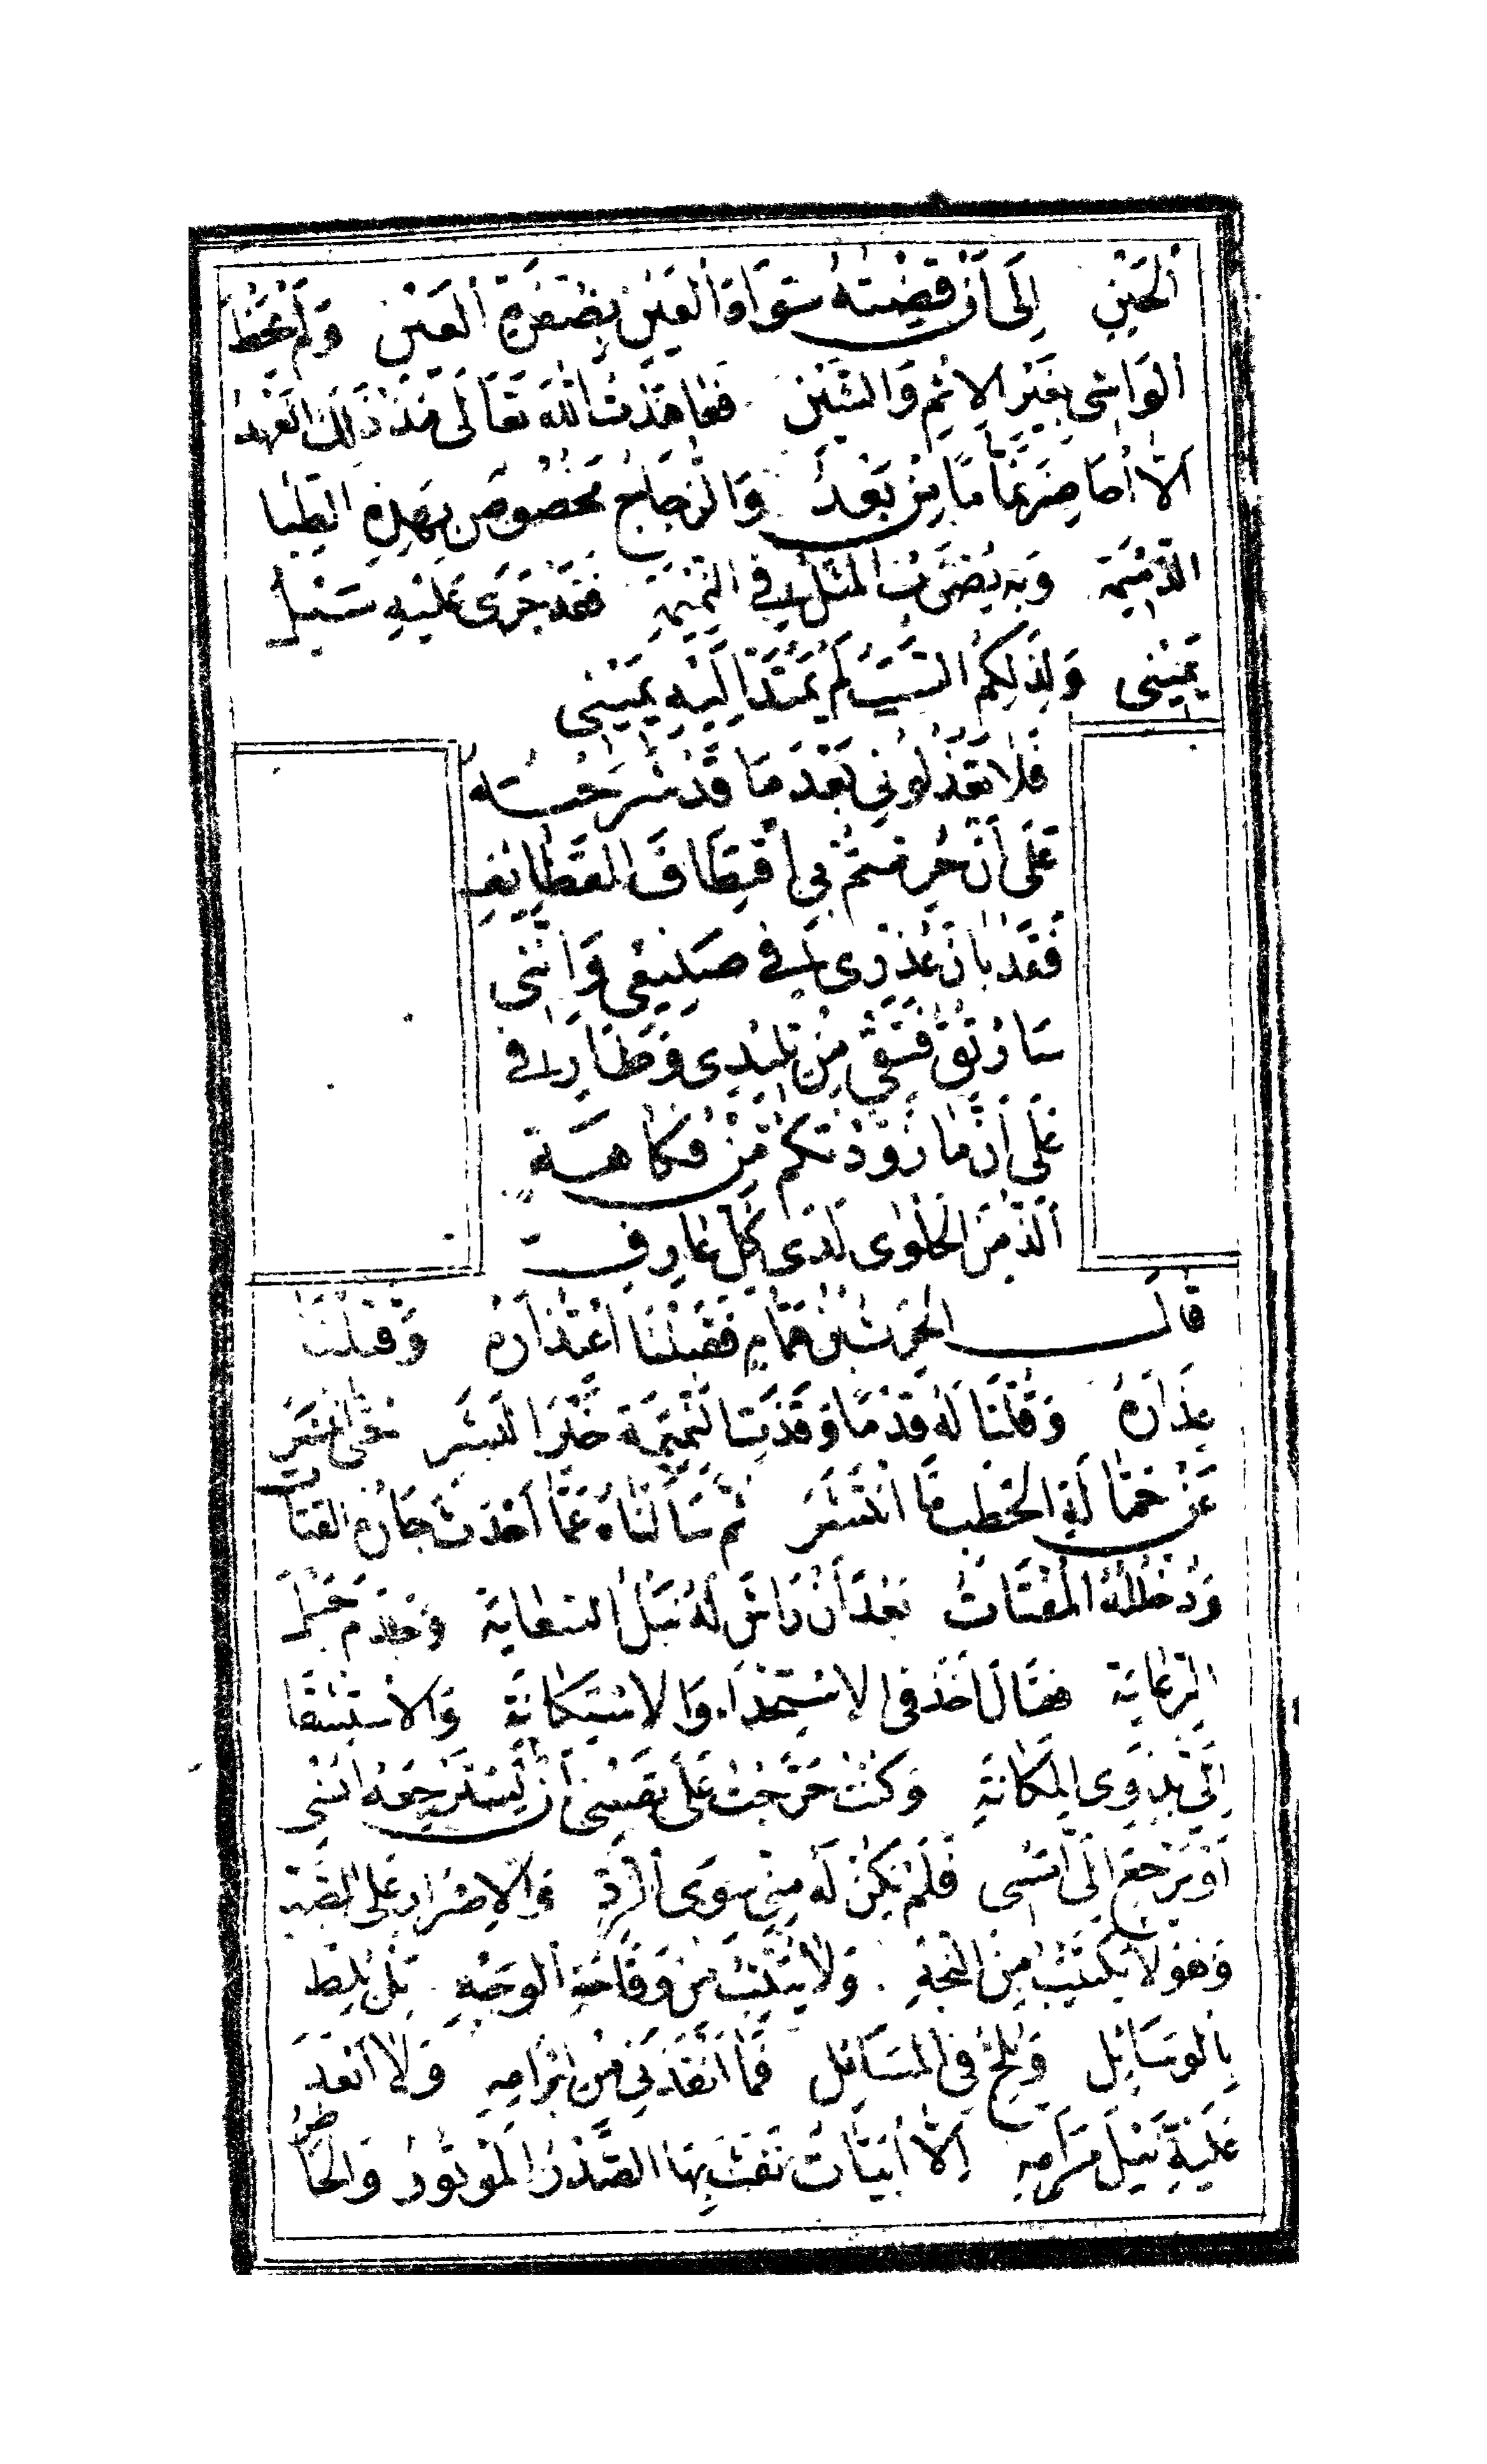 الْحَيْنِ إِلَى أَنْ قِضْتُهُ سَوَادَ الْعَيْنِ بِصُفْرَةِ الْعَيْنِ وَلَمْ يَحْظَ
الْوَاشِي بِغَيْرِ الإِثْمِ وَالشَّيْنِ فَعَاهَدْتُ اللّٰهَ تَعَالَى مُذْ ذَلِكَ الْعَهْدِ
أَلَّا أُحَاضِرَ نَمَّامًا مِنْ بَعْدُ وَالزُّجَاجُ مَخْصُوصٌ بِهَذِهِ الطِّبَا
الذَّمِيمَة وَبِهِ يُضْرَبُ الْمَثَلُ فِي النَّمِيمَةِ فَقَدْ جَرَى عَلَيْهِ سَيْلُ
يَمِينِي وَلِذَلِكُمُ السَّبَبِ لَمْ تَمْتَدَّ إِلَيْهِ يَمِينِي
فَلَا تَعْذُلُونِي بَعْدَ مَا قَدْ شَرَحْتُهُ
عَلَى أَنْ حُرِمْتُمْ بِي اقْتِطَافَ الْقَطَائِفِ
فَقَدْ بَانَ عُذْرِي فِي صَنِيعِي وَإِنَّنِي
سَأَرْتُقُ فَتْقِي مِنْ تَلِيدِي وَطَارِفِي
عَلَى أَنَّ مَا زَوَّدْتُكُمْ مِنْ فُكَاهَةٍ
أَلَذُّ مِنَ الْحَلْوَى لَدَى كُلِّ عَارِفِ
قَالَ الْحَرِثُ بْنُ هَمَّامٍ فَقَبِلْنَا اعْتِذَارَهُ وَقَبَّلْنَا
عِذَارَهُ وَقُلْنَا لَهُ قِدْمًا وَقَذَتِ النَّمِيمَةُ خَيْرَ الْبَشَرِ حَتَّى انْتَشَرَ
عَنْ حَمَّالَةِ الْحَطَبِ مَا انْتَشَرَ ثُمَّ سَأَلْنَاهُ عَمَّا أَحْدَثَ جَارُهُ الْقَتَّاتُ
وَدُخْلُلُهُ الْمُفْتَاتُ بَعْدَ أَنْ رَاشَ لَهُ نَبْلَ السِّعَايَةِ وَجَذَمَ حَبْلَ
الرِّعَايَةِ فَقَالَ أَخَذَ فِي الاسْتِخْذَاءِ وَالاسْتِكَانَةِ وَالاسْتِشْفَا
إِلَيَّ بِذَوِي الْمَكَانَةِ وَكُنْتُ حَرَّجْتُ عَلَى نَفْسِي أَنْ لَا يَسْتَرْجِعَهُ أُنْسِي
أَوْ يَرْجِعَ إِلَيَّ أَمْسِي فَلَمْ يَكُنْ لَهُ مِنِّي سِوَى الرَّدِّ وَالإِصْرَارِ عَلَى الصَّدِّ
وَهُوَ لَا يَكْتَئِبُ مِنَ النَّجْهِ وَلَا يَتَّئِبُ مِنْ وَقَاحَةِ الْوَجْهِ بَلْ يُلِطُّ
بِالْوَسَائِلِ وَيُلِحُّ فِي الْمَسَائِلِ فَمَا أَنْقَذَنِي مِنْ إِبْرَامِهِ وَلَا أَبْعَدَ
عَلَيْهِ نَيْلَ مَرَامِهِ إِلَّا أَبْيَاتٌ نَفَثَ بِهَا الصَّدْرُ الْمَوْتُورُ وَالْخَاطِرُ